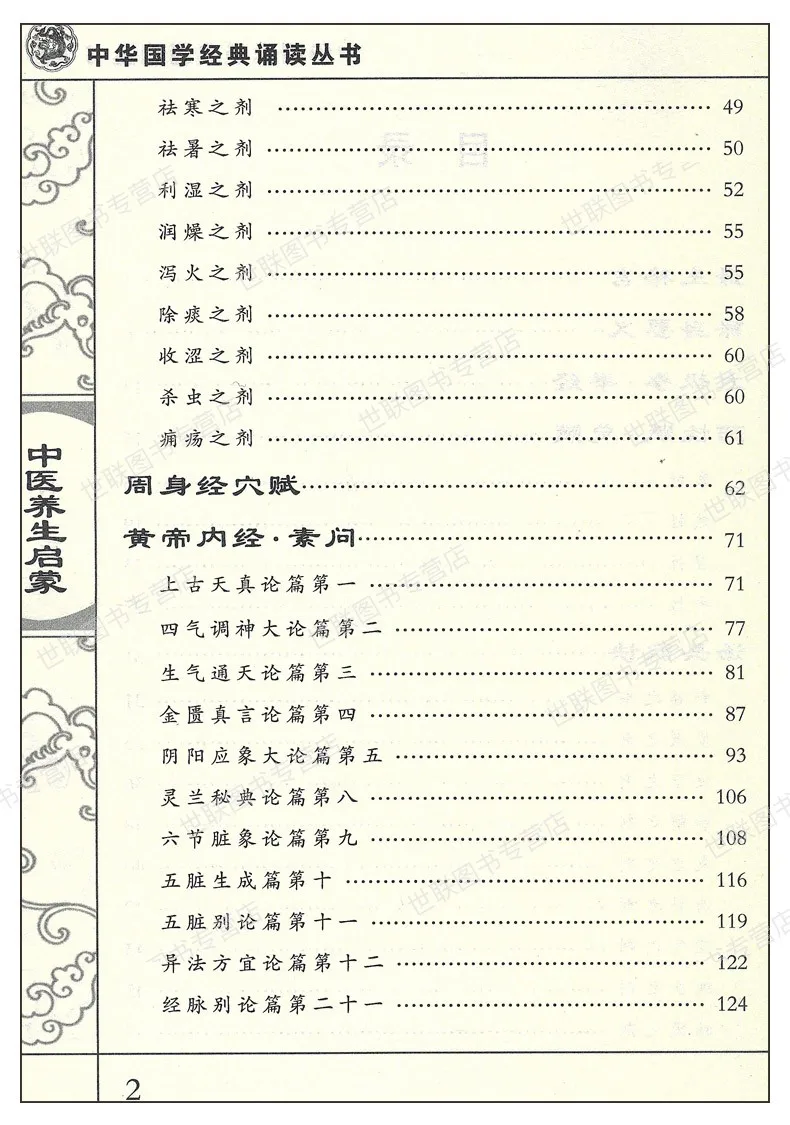 中华国学经典诵读丛书
祛寒之剂 …… 49
祛暑之剂 …… 50
利湿之剂 …… 52
润燥之剂 …… 55
泻火之剂 …… 55
除痰之剂 …… 58
收涩之剂 …… 60
杀虫之剂 …… 60
痈疡之剂 …… 61
周身经穴赋 …… 62
黄帝内经·素问 …… 71
上古天真论篇第一 …… 71
四气调神大论篇第二 …… 77
生气通天论篇第三 …… 81
金匮真言论篇第四 …… 87
阴阳应象大论篇第五 …… 93
灵兰秘典论篇第八 …… 106
六节脏象论篇第九 …… 108
五脏生成篇第十 …… 116
五脏别论篇第十一 …… 119
异法方宜论篇第十二 …… 122
经脉别论篇第二十一 …… 124
中医养生启蒙
2
世联图书专营店